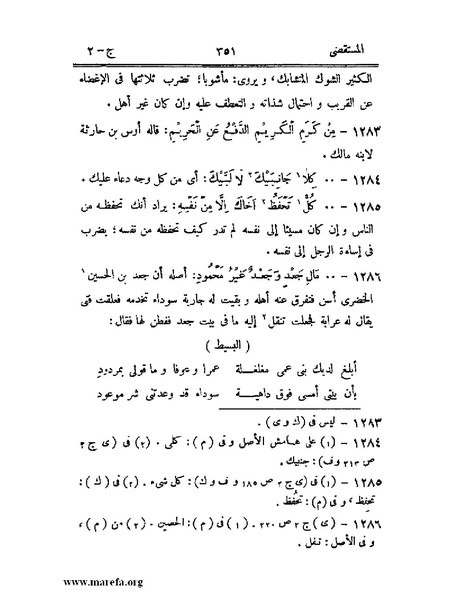 المستقصى ٣٥١ ج - ٢
الكثير الشوك المتشابك، و يروى: مأشوبا؛ تضرب ثلاثتها فى الإغضاء
عن القريب و احتمال شذاته و التعطف عليه وإن كان غير أهل.
١٢٨٣ - مِنْ كَرَمِ الْكَرِيْمِ الدَّفْعُ عَنِ الْحَرِيْمِ: قاله أوس بن حارثة
لابنه مالك.
١٢٨٤ - ٠٠ كِلَا¹ جَانِبَيْكَ² لَا لَبَّيْكَ: أى من كل وجه دعاء عليك.
١٢٨٥ - ٠٠ كُلٌّ¹ تَحَفَّظُ² أَخَاكَ إِلَّا مِنْ نَفْسِهِ: يراد أنك تحفظه من
الناس و إن كان مسيئا إلى نفسه لم تدر كيف تحفظه من نفسه؛ يضرب
فى إساءة الرجل إلى نفسه.
١٢٨٦ - ٠٠ مَالِ جَعْدٍ وَجَعْدٌ غَيْرُ مَحْمُودٍ: أصله أن جعد بن الحصين¹
الخضرى أسن فتفرق عنه أهله و بقيت له جارية سوداء تخدمه فعلقت فتى
يقال له عرابة فجعلت تنقل² إليه ما فى بيت جعد ففطن لها فقال:
( البسيط )
أبلغ لديك بنى عمى مغلغلة عمرا و عوفا و ما قولى بمردود
بأن بيتى أمسى فوق داهية سوداء قد وعدتنى شر موعود
١٢٨٣ - ليس فى (ك و ى).
١٢٨٤ - (١) على هامش الأصل و فى (م): كلى. (٢) فى (ى ج ٢
ص ٢١٣ و ف): جنبيك.
١٢٨٥ - (١) فى (ى ج ٢ ص ١٨٥ و ف و ك): كل شىء. (٢) فى (ك):
تحفِظ، و فى (م): تحُفظ.
١٢٨٦ - (ى) ج ٢ ص ٢٢٠. (١) فى (م): الحصين. (٢) من (م)،
و فى الأصل: تنفل.
www.marefa.org